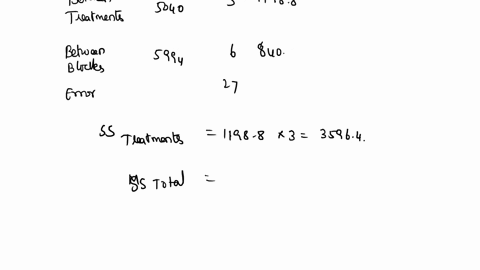 Treatments 5040 5 1198.8
Between Blocks 5994 6 840.
Error 27
SS Treatments = 1198.8 × 3 = 3596.4.
SS Total =